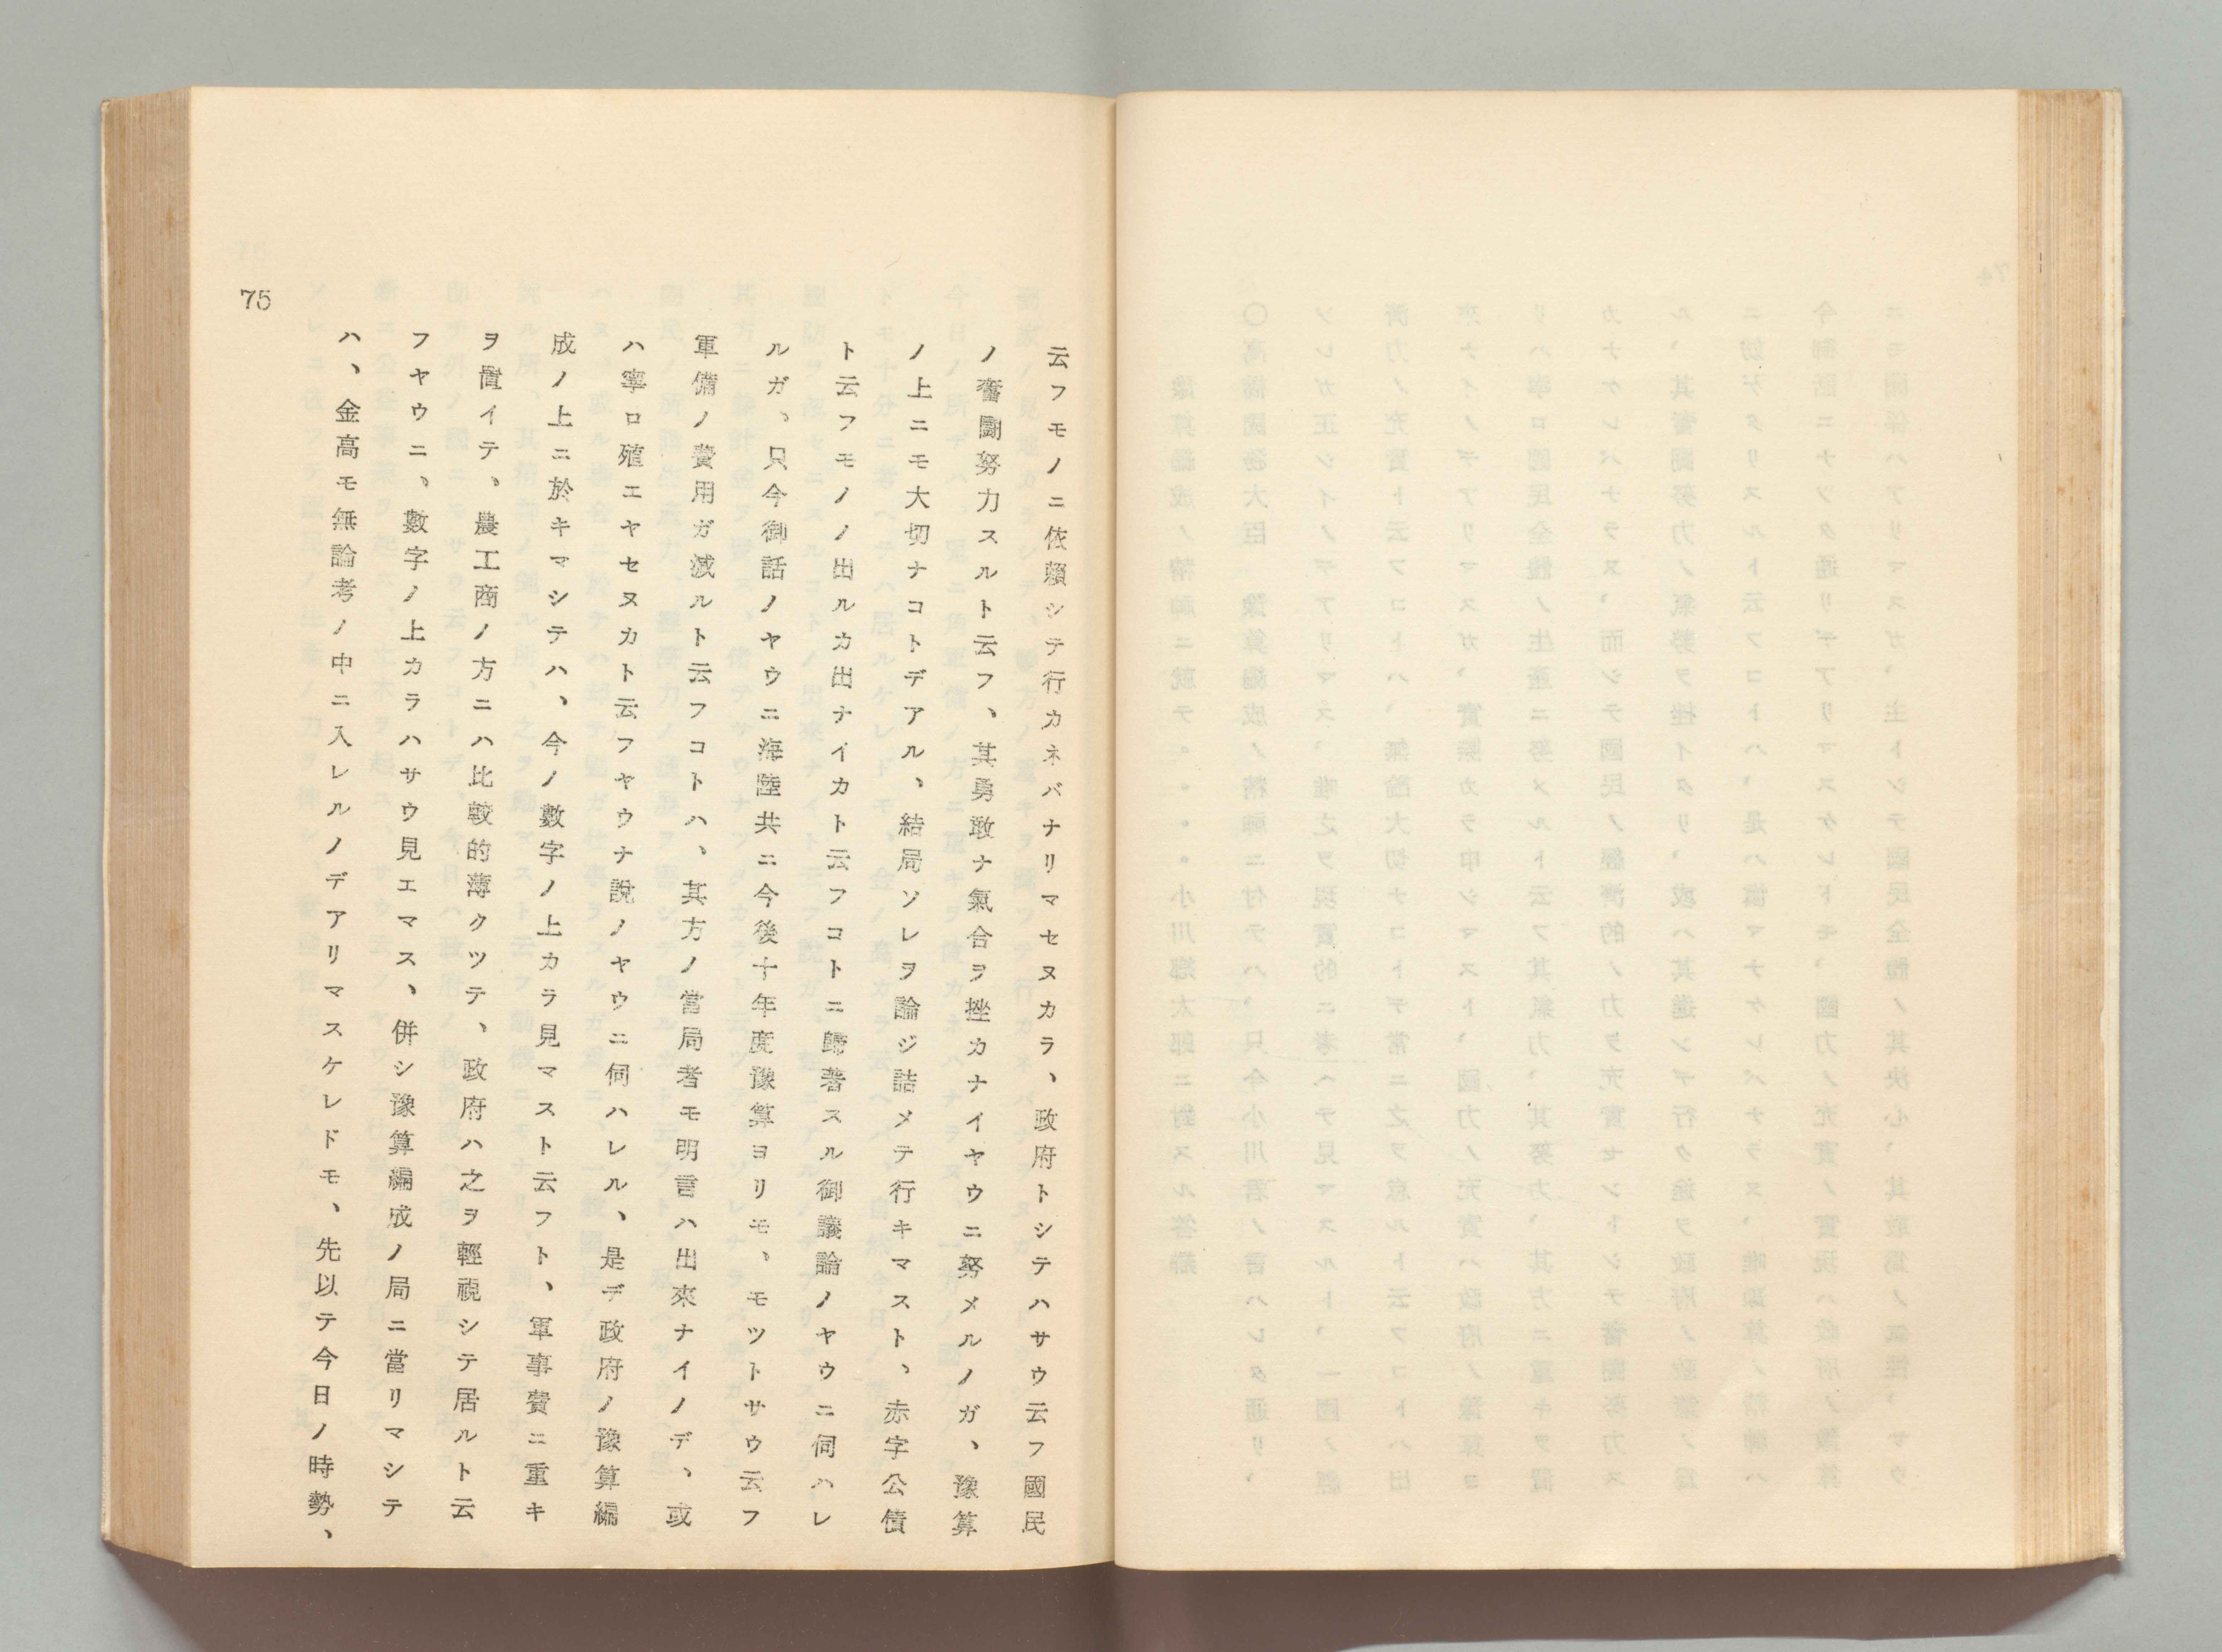 云フモノニ依賴シテ行カネバナリマセヌカラ、政府トシテハサウ云フ國民
ノ奮鬪努力スルト云フ、其勇敢ナ氣合ヲ挫カナイヤウニ努メルノガ、豫算
ノ上ニモ大切ナコトデアル、結局ソレヲ論ジ詰メテ行キマスト、赤字公債
ト云フモノノ出ルカ出ナイカト云フコトニ歸著スル御議論ノヤウニ伺ハレ
ルガ、只今御話ノヤウニ海陸共ニ今後十年度豫算ヨリモ、モツトサウ云フ
軍備ノ費用ガ減ルト云フコトハ、其方ノ當局者モ明言ハ出來ナイノデ、或
ハ寧ロ殖エヤセヌカト云フヤウナ說ノヤウニ伺ハレル、是デ政府ノ豫算編
成ノ上ニ於キマシテハ、今ノ數字ノ上カラ見マスト云フト、軍事費ニ重キ
ヲ置イテ、農工商ノ方ニハ比較的薄クツテ、政府ハ之ヲ輕視シテ居ルト云
フヤウニ、數字ノ上カラハサウ見エマス、併シ豫算編成ノ局ニ當リマシテ
ハ、金高モ無論考ノ中ニ入レルノデアリマスケレドモ、先以テ今日ノ時勢、
75